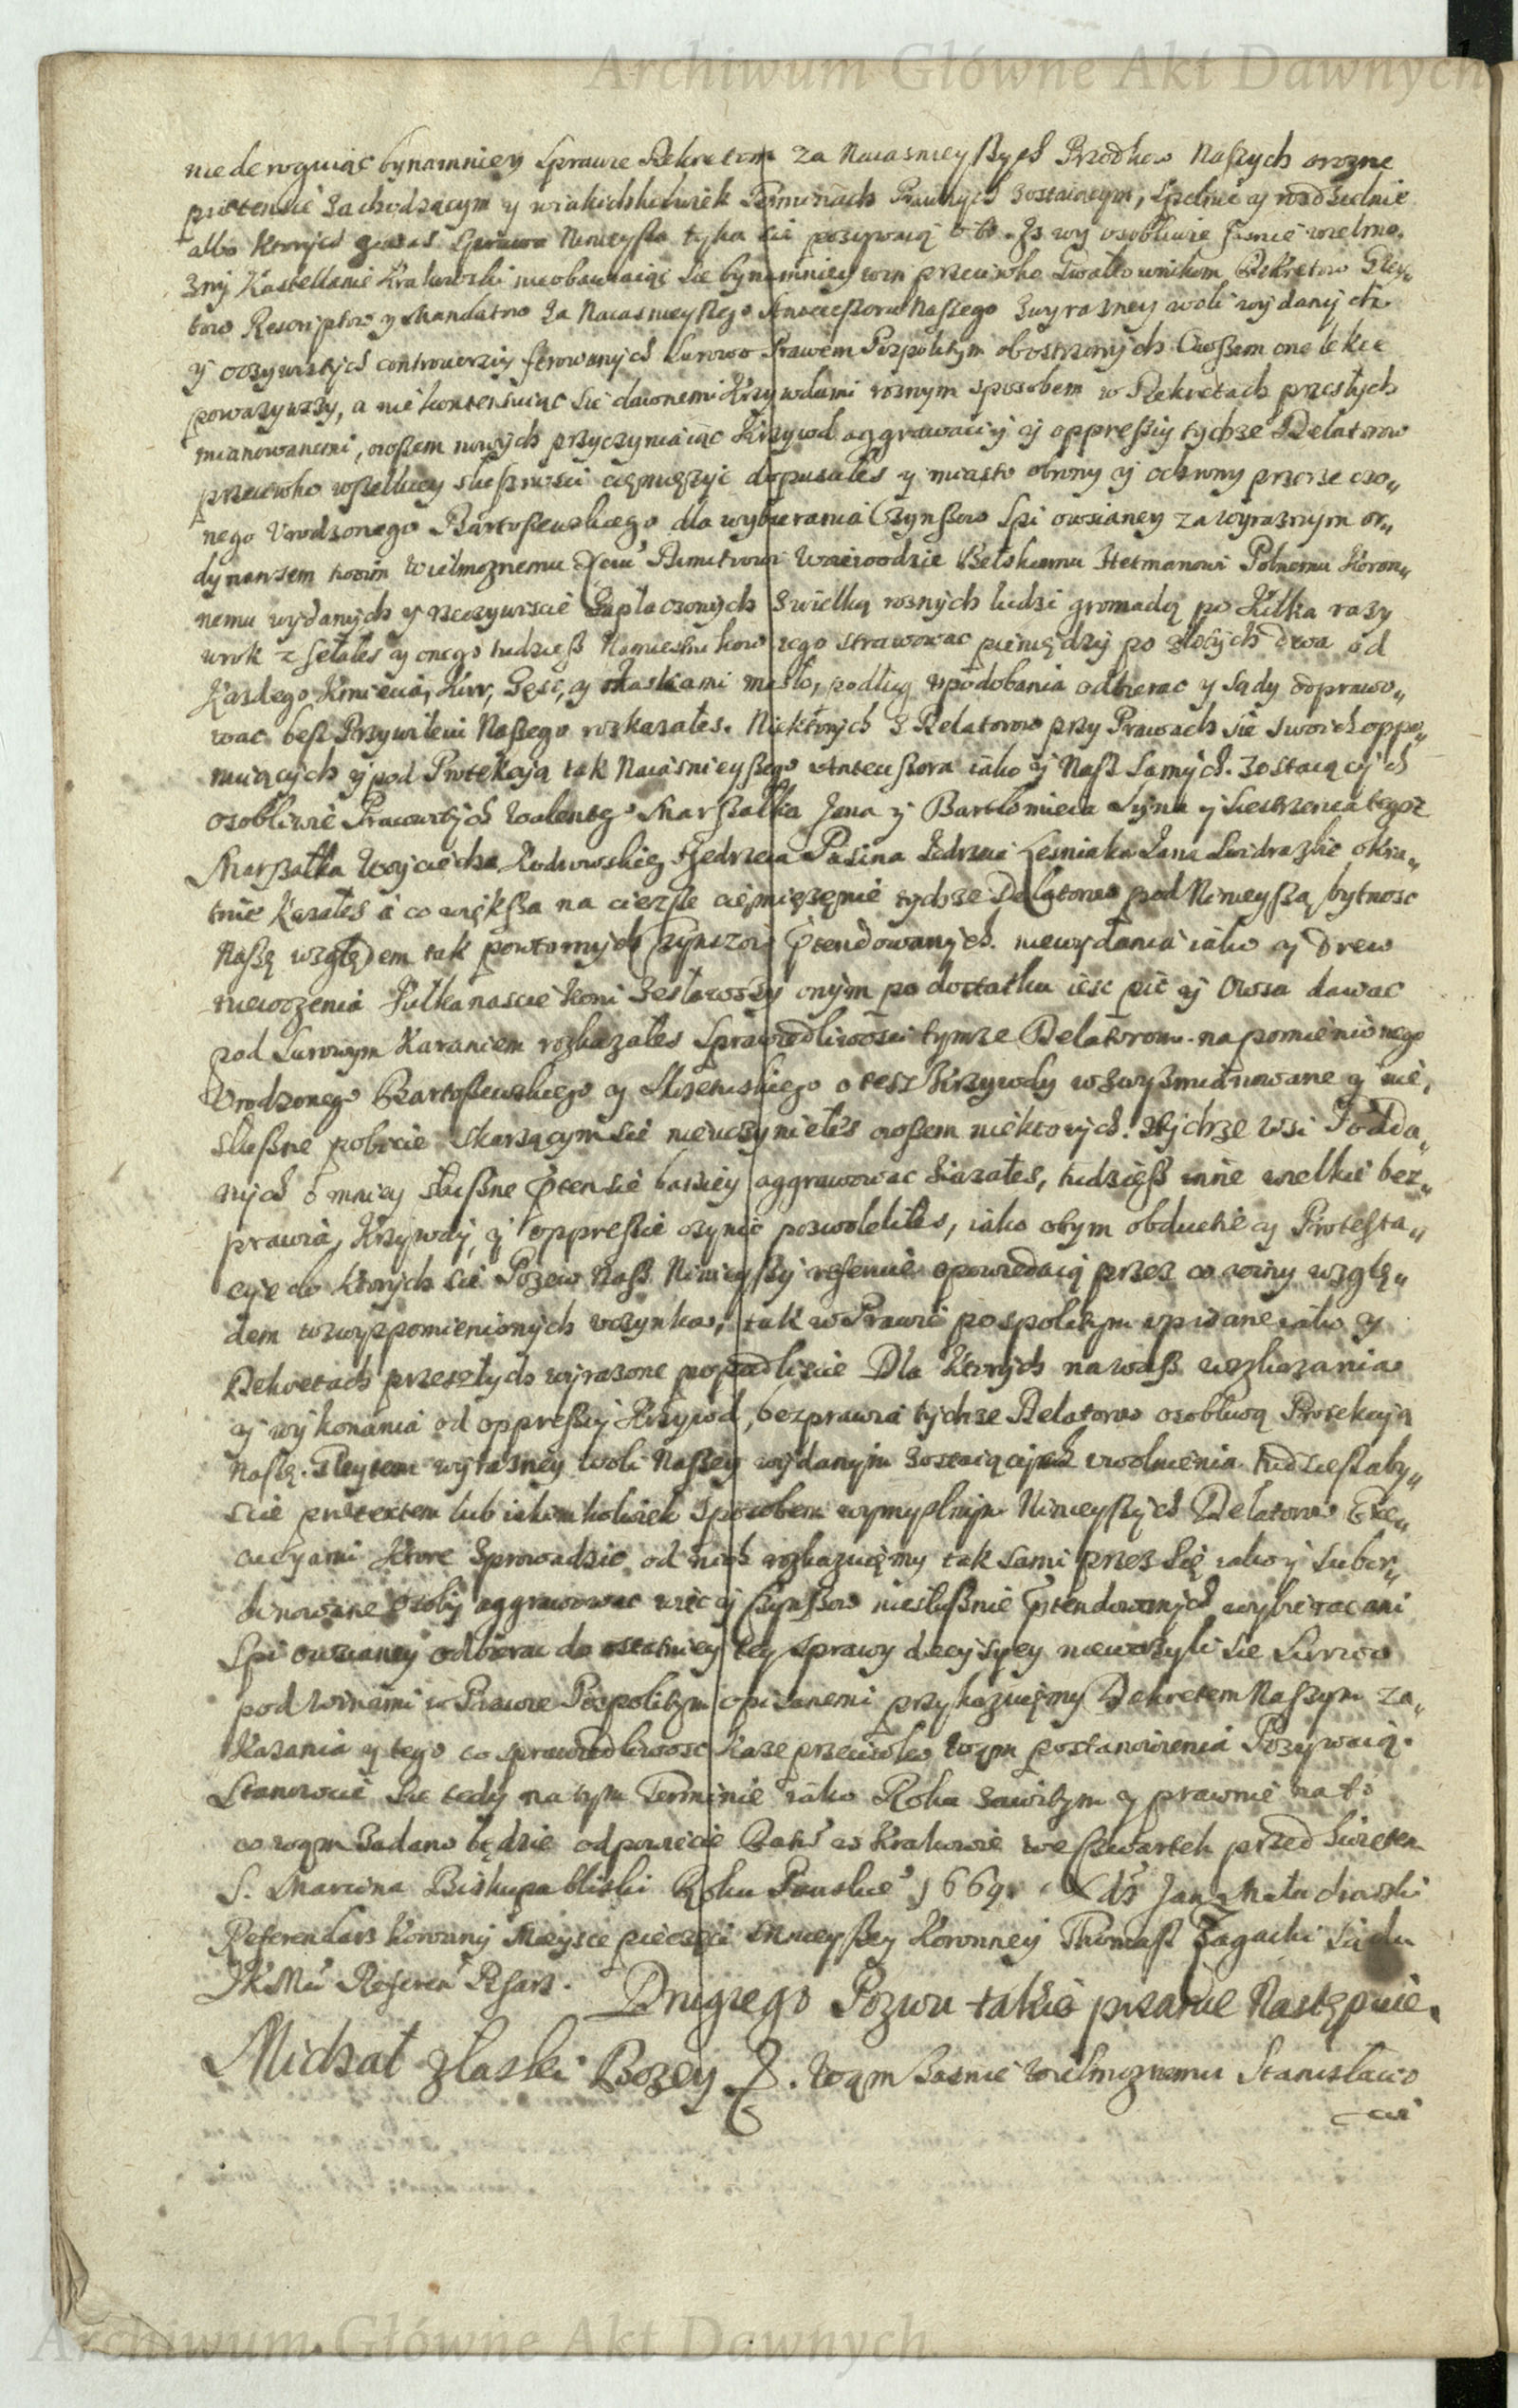 Archiwum Główne Akt Dawnych
niederoguiąc bynamniey Sprawie Dekretom za Naiasnieyszych Przodkow Naszych o rozne
praetensie zachodzącym y wiakichkolwiek Terminach Prawnych zostaiącym, spełnie y rozdzielnie
albo ktorych ... Sprawa Ninieysza tyka się pozywaią o to. Iz wy osobliwie Jasnie wielmo-
zny Kastellanie Krakowski nieobawiaiąc sie bynamniey win przeciwko Gwałtownikom Dekretow Gley-
tow Rescriptow y Mandatow za Naiasnieyszego Antecessora Naszego z wyrazney woli wydanych
y oczywistych controwerziy ferowanych surowo Prawem Pospolitym obostrzonych Owszem one lekce
powazywszy, a nie kontentuiąc się dawnemi Krzywdami roznym sposobem w Dekretach przeszłych
mianowanemi, owszem nowych przyczyniaiąc Krzywd aggrawaciy y oppressiy tychze Delatorow
przeciwko wszelkiey słusznosci ciemięzyc dopuscałes y miasto obrony y ochrony przerzeczo„
nego Urodzonego Bartoszewskiego dla wybierania Czynszow Spi owsianey za wyraznym or„
dynansem twoim Wielmoznemu Xciu Dimitrowi Woiewodzie Bełskiemu Hetmanowi Polnemu Koron„
nemu wydanych y rzeczywiscie zapłaconych z wielką roznych ludzi gromadą po kilka razy
wrok zsełałes y onego tudziesz Namiesnikow iego strawowac pieniędzy po złotych dwa od
Kazdego Kmiecia, Kur, Gęsi, y Maskami masło, podług upodobania odbierac y Sądy odprawo„
wac besz Przywileiu Naszego roskazałes. Niektorych z Delatorow przy Prawach sie swoich oppo„
nuiących y pod Protekcyą tak Naiasnieyszego Antecessora iako y Nasz samych zostaiących
osobliwie Pracowitych Walentego Marszałka Jana y Bartłomieia Syna y Siestrzenca tegoz
Marszałka Woyciecha Kodrowskieg Jędrzeia Pasina Jedrzeia Lesniaka Jana Swidra zbic okru„
tnie kazałes a co większa na cięzsze ciemięzenie tychze Delatorow pod Ninieyszą bytnosc
Naszą względem tak powtornych Czynszow ptendowanych niewydania iako y Drew
niewozenia Kulkanascie koni zesławszy onym podostatku iesc pic y Owsa dawac
pod surowym Karaniem rozkazałes Sprawiedliwosci tymze Delatorom na pomienionego
Urodzonego Bartoszewskiego y Mszetuskiego o tesz Krzywdy wzwyszmianowane y nie„
słuszne pobicie skarzącym się nieuczyniełes owszem niektorych tychze wsi Podda„
nych o mniey słuszne ptensie barziey aggrawowac kazałes, tudziesz inne wielkie bez„
prawia, Krzywdy, y oppressie czynic pozwoleliles, iako obym obductie y Protesta„
cye do ktorych się Pozew Nasz Ninieyszy referuie opowiedaią przez co winy wzglę„
dem wzwyszpomienionych uczynkow, tak w Prawie pospolitym opisane iako y
Dekretach przeszłych wyrazone popadliscie Dla ktorych na wasz wskazania
y wykonania od oppressiy Krzywd, bezprawia tychze Delatorow osobliwą Protekcyą
Naszą. Gleytem wyrazney woli Naszey wydanym zostaiących uwolnienia tudziesz aby„
scie praetextem lub iakimkolwiek sposobem wymyslnym Ninieyszych Delatorow Exe„
cucyami ktore sprowadzic od nich rozkazuięmy tak sami przez się iako y subor„
dinowane osoby aggrawowac więcey Czynszow niesłusznie ptendowanych wybierac ani
Spi owsianey odbierac do ostatniey tey sprawy decyzyey niewazyli sie Surowo
pod winami w Prawie Pospolitym opisanemi przykazuiemy Dekretem Naszym za„
kazania y tego co sprawiedliwosc kaze przeciwko wąm postanowienia Pozywaią.
Stanowcie sie tedy na tym Terminie iako Roku zawitym y prawnie na to
co wąm zadano będzie odpowiecie Datt w Krakowie we Czwartek przed Swietem
S. Marcina Biskupa bliski Roku Panskie 1669. Xdz Jan Małachowski
Referendarz Koronny Mieysce pieczęci Mnieyszey Koronney Thomasz Zagacki Sądu
JKMci Referen Pisarz. Drugiego Pozwu takie pisanie Następuie.
Michał z łaski Bozey &. Wąm Jasnie Wielmoznemu Stanisławo
wi
Archiwum Główne Akt Dawnych